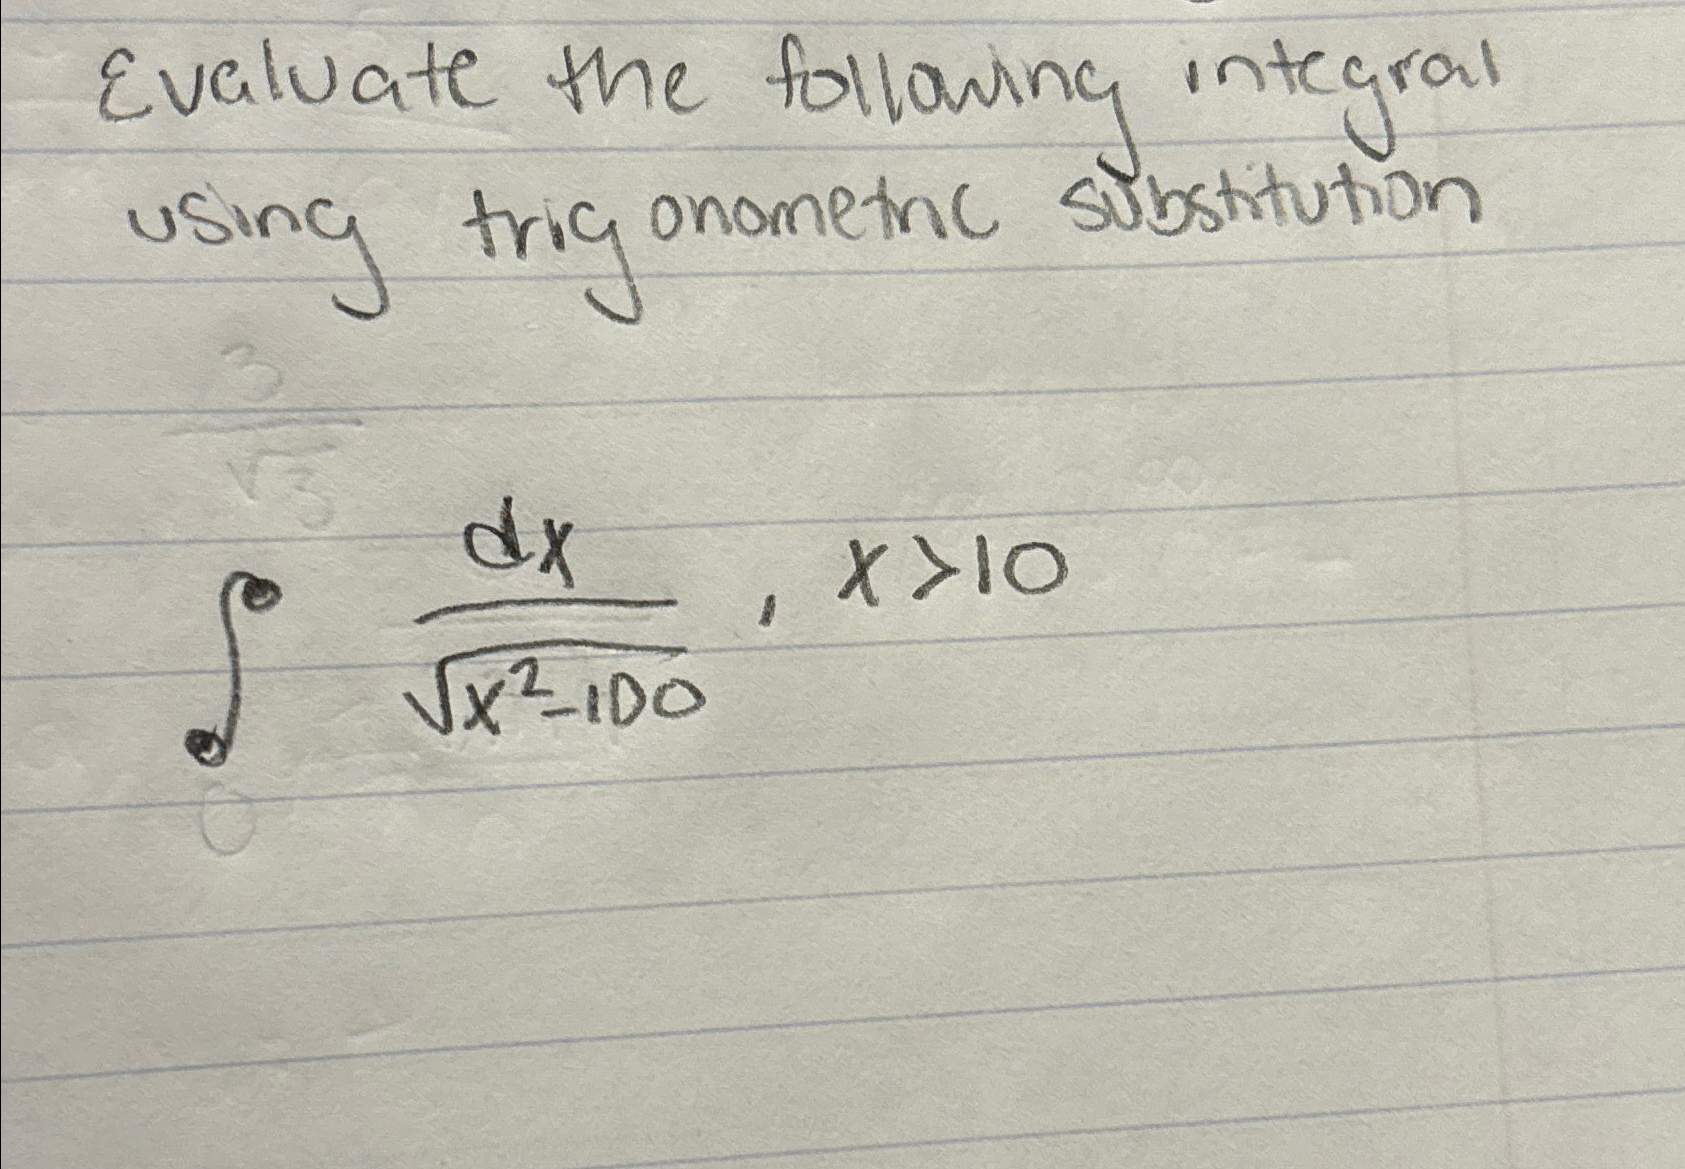 Evaluate the following integral
using trigonometric substitution
3
√3
∫ dx / √x²-100 , x>10
0